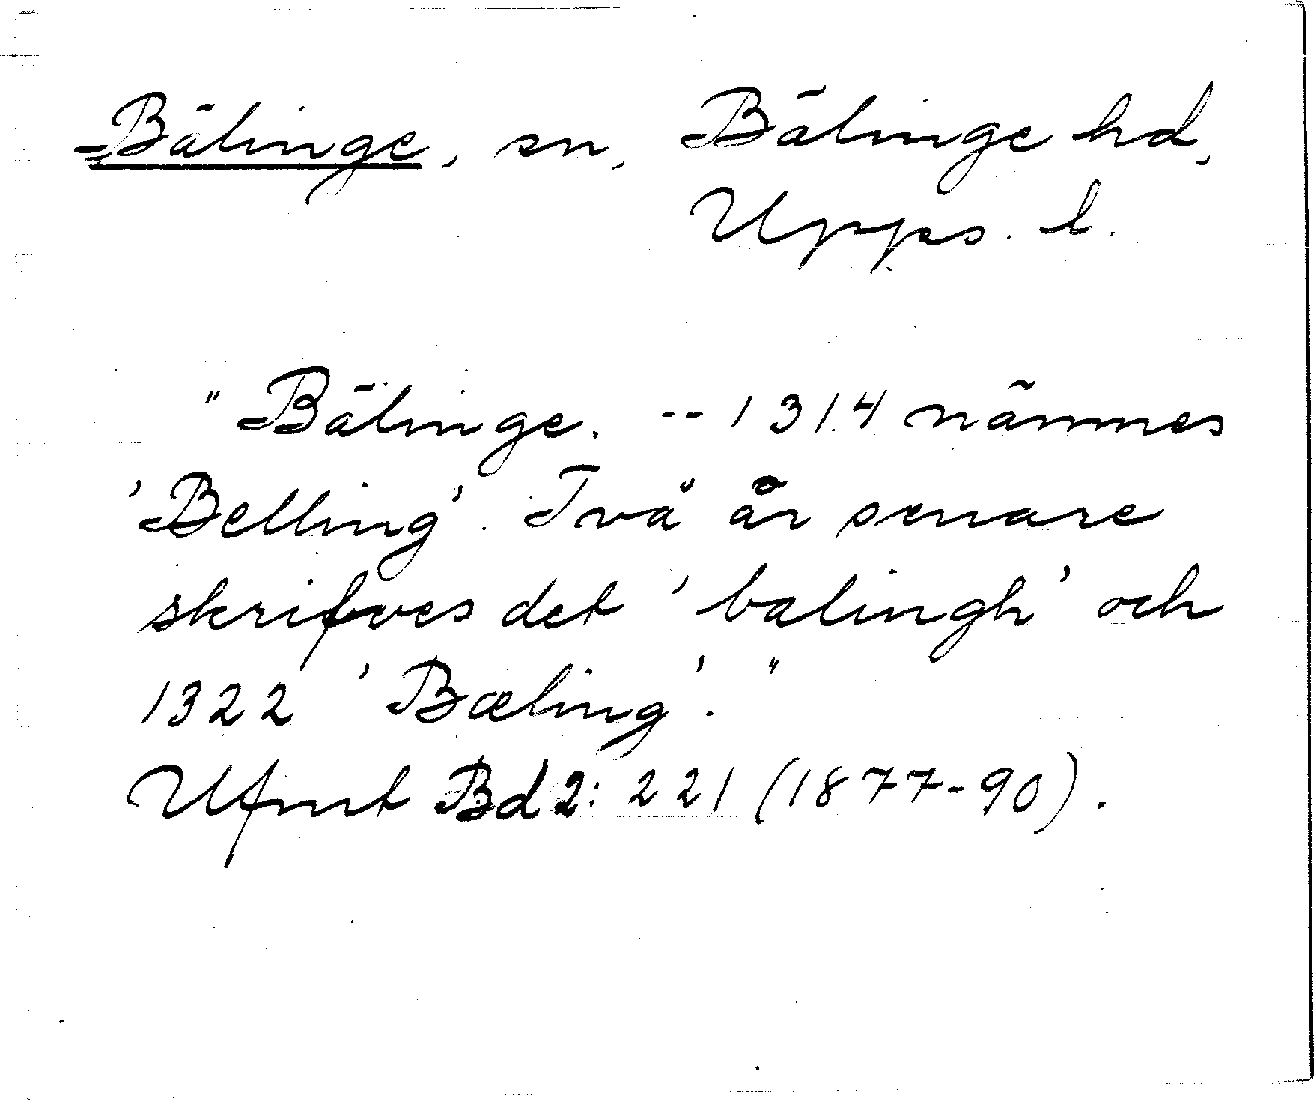 Bälinge, sn, Bälinge hd,
Upps. l.
"Bälinge. -- 1314 nämnes
'Belling'. Två år senare
skrifves det 'balingh' och
1322 'Bæling'."
Ufmt Bd 2: 221 (1877-90).